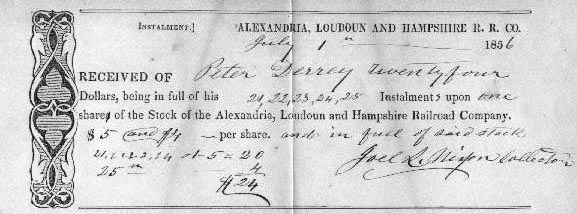 INSTALMENT. ALEXANDRIA, LOUDOUN AND HAMPSHIRE R. R. CO.
July 1st 1856
RECEIVED OF Peter Derrey twenty four
Dollars, being in full of his 21, 22, 23, 24, 25 Instalments upon one
share of the Stock of the Alexandria, Loudoun and Hampshire Railroad Company.
$5 and $4 per share. and in full of said stock
at 5 = 20
25th 4
$24
Joel L. Nixon Collector